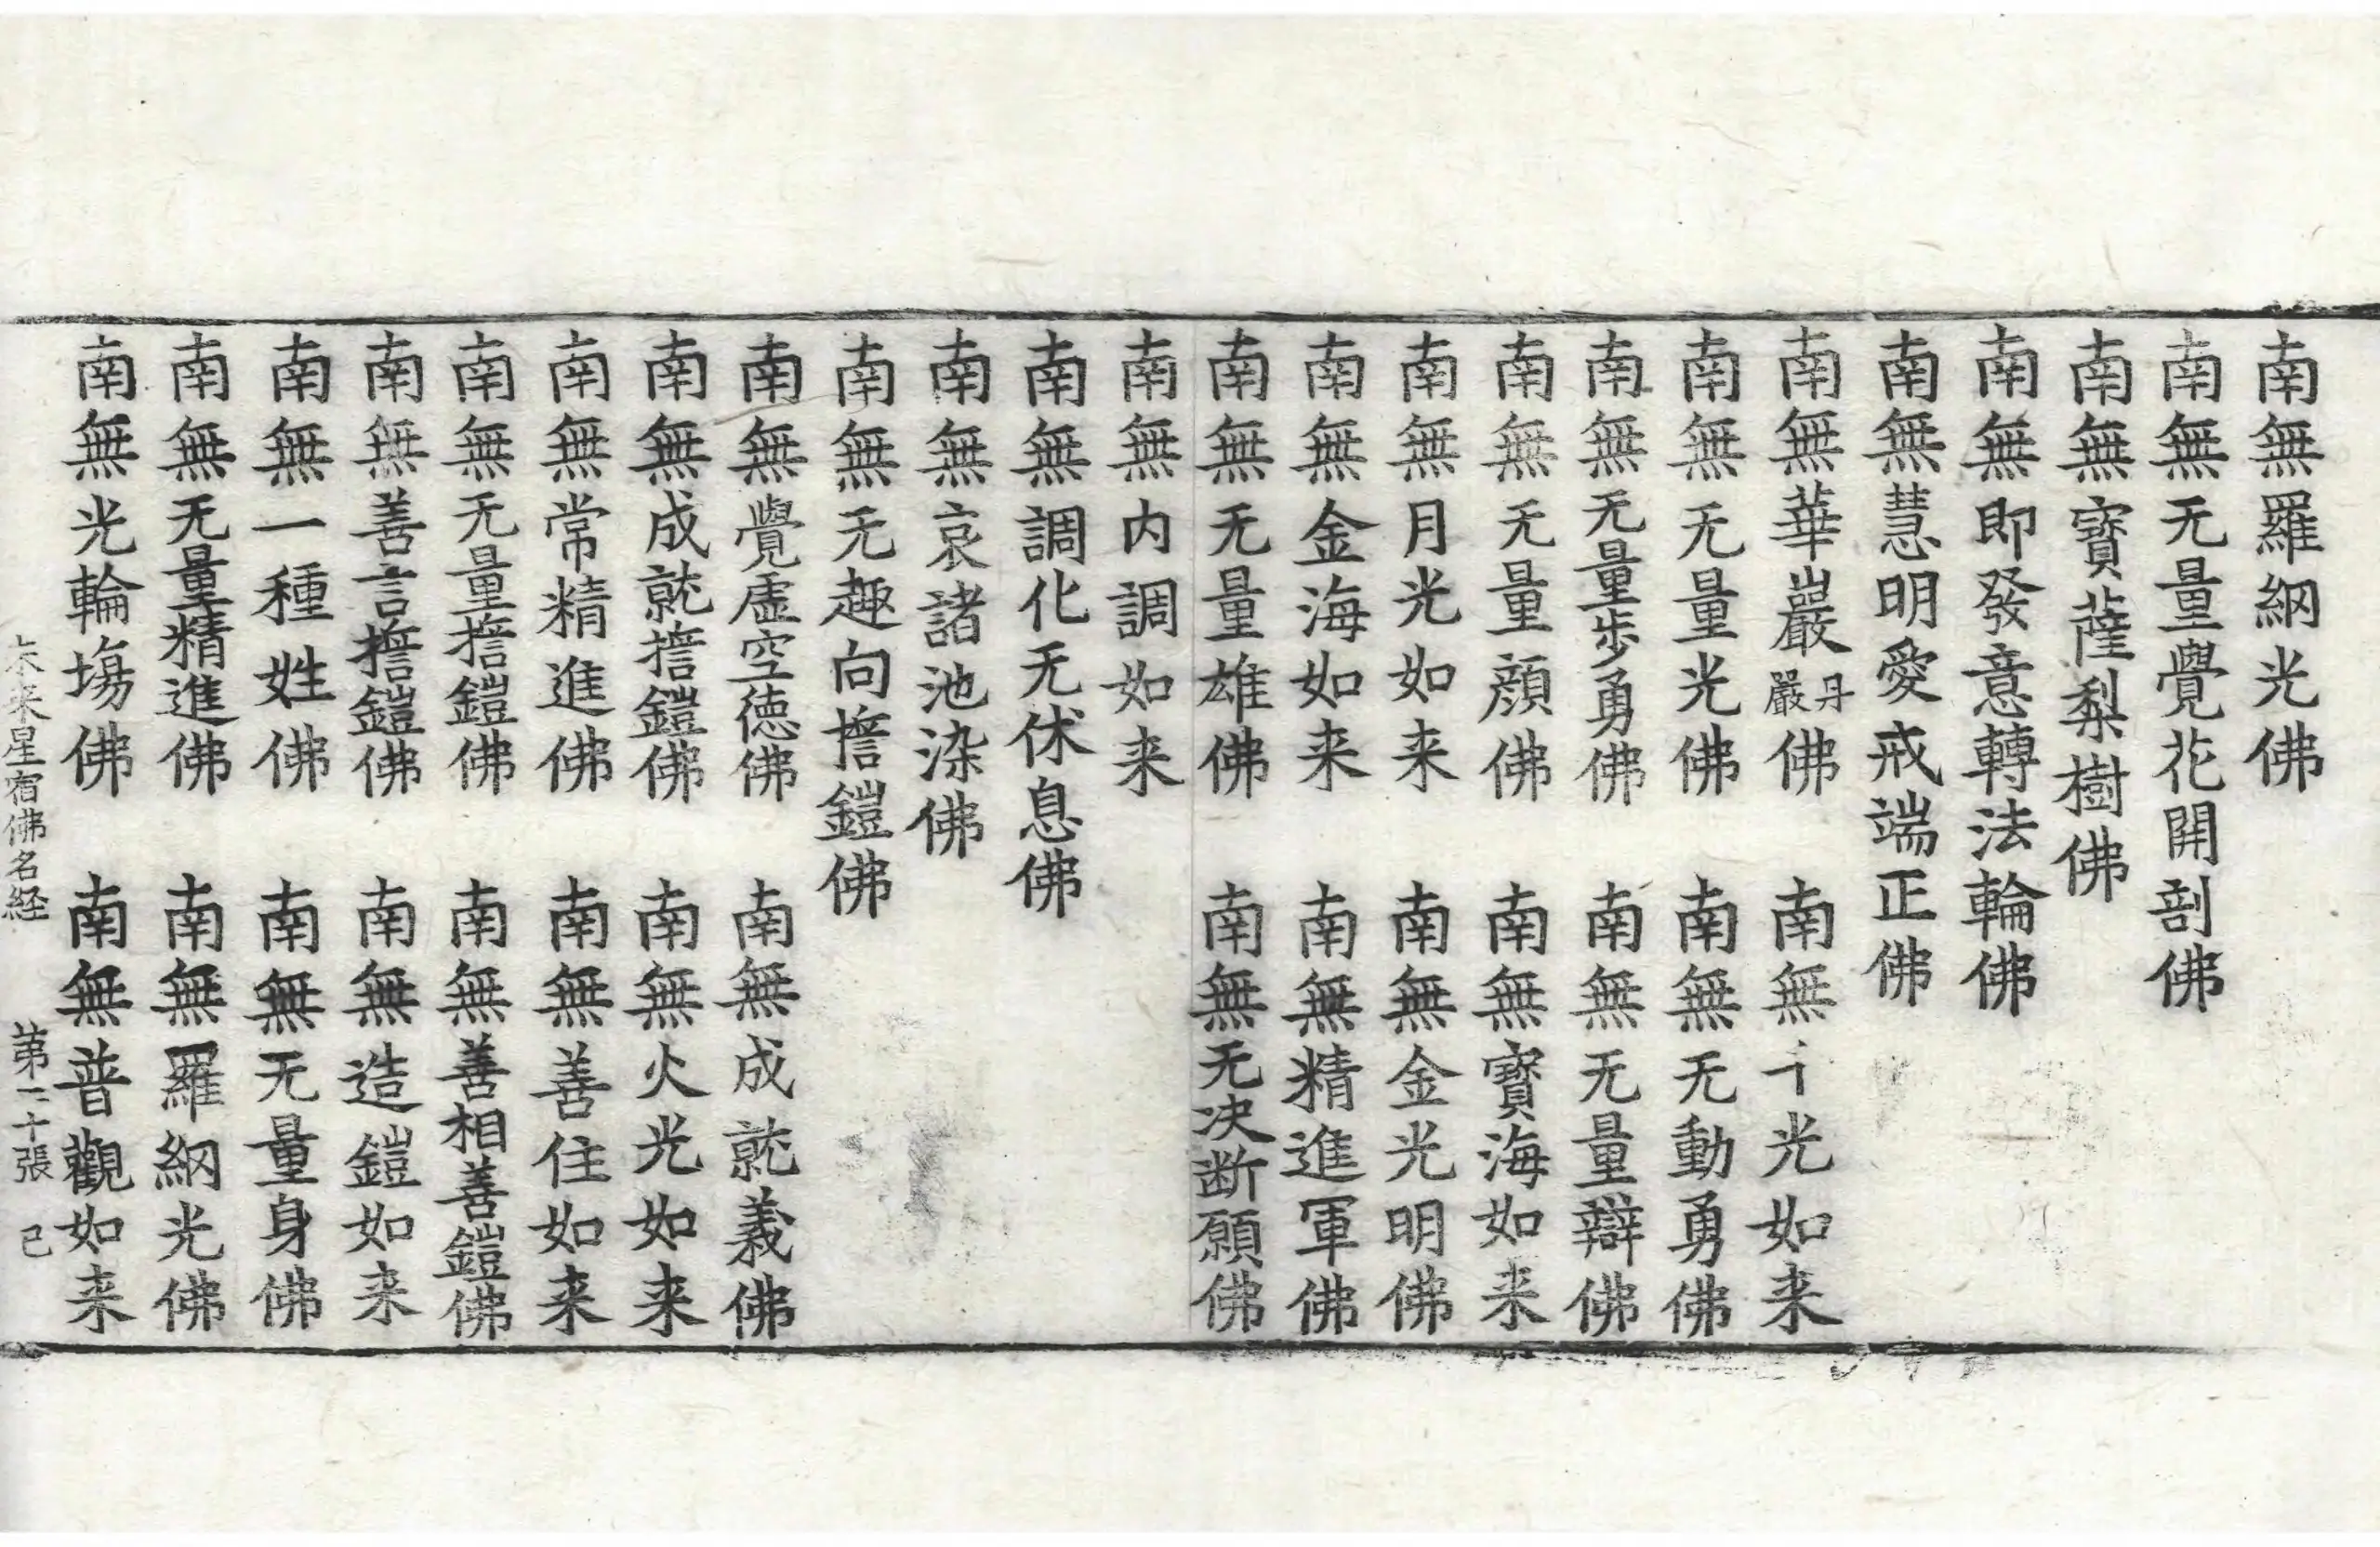 南無羅網光佛
南無无量覺花開剖佛
南無寶薩梨樹佛
南無即發意轉法輪佛
南無慧明愛戒端正佛
南無華巖丹嚴佛　南無千光如来
南無无量光佛　南無无動勇佛
南無无量步勇佛　南無无量辯佛
南無无量顔佛　南無寶海如来
南無月光如来　南無金光明佛
南無金海如来　南無精進軍佛
南無无量雄佛　南無无决断願佛
南無内調如来
南無調化无休息佛
南無哀諸池染佛
南無无趣向擔鎧佛
南無覺虛空德佛　南無成就義佛
南無成就擔鎧佛　南無火光如来
南無常精進佛　南無善住如来
南無无量擔鎧佛　南無善相善鎧佛
南無善言擔鎧佛　南無造鎧如来
南無一種姓佛　南無无量身佛
南無无量精進佛　南無羅網光佛
南無光輪塲佛　南無普觀如来
未来星宿佛名経　第二十張　己